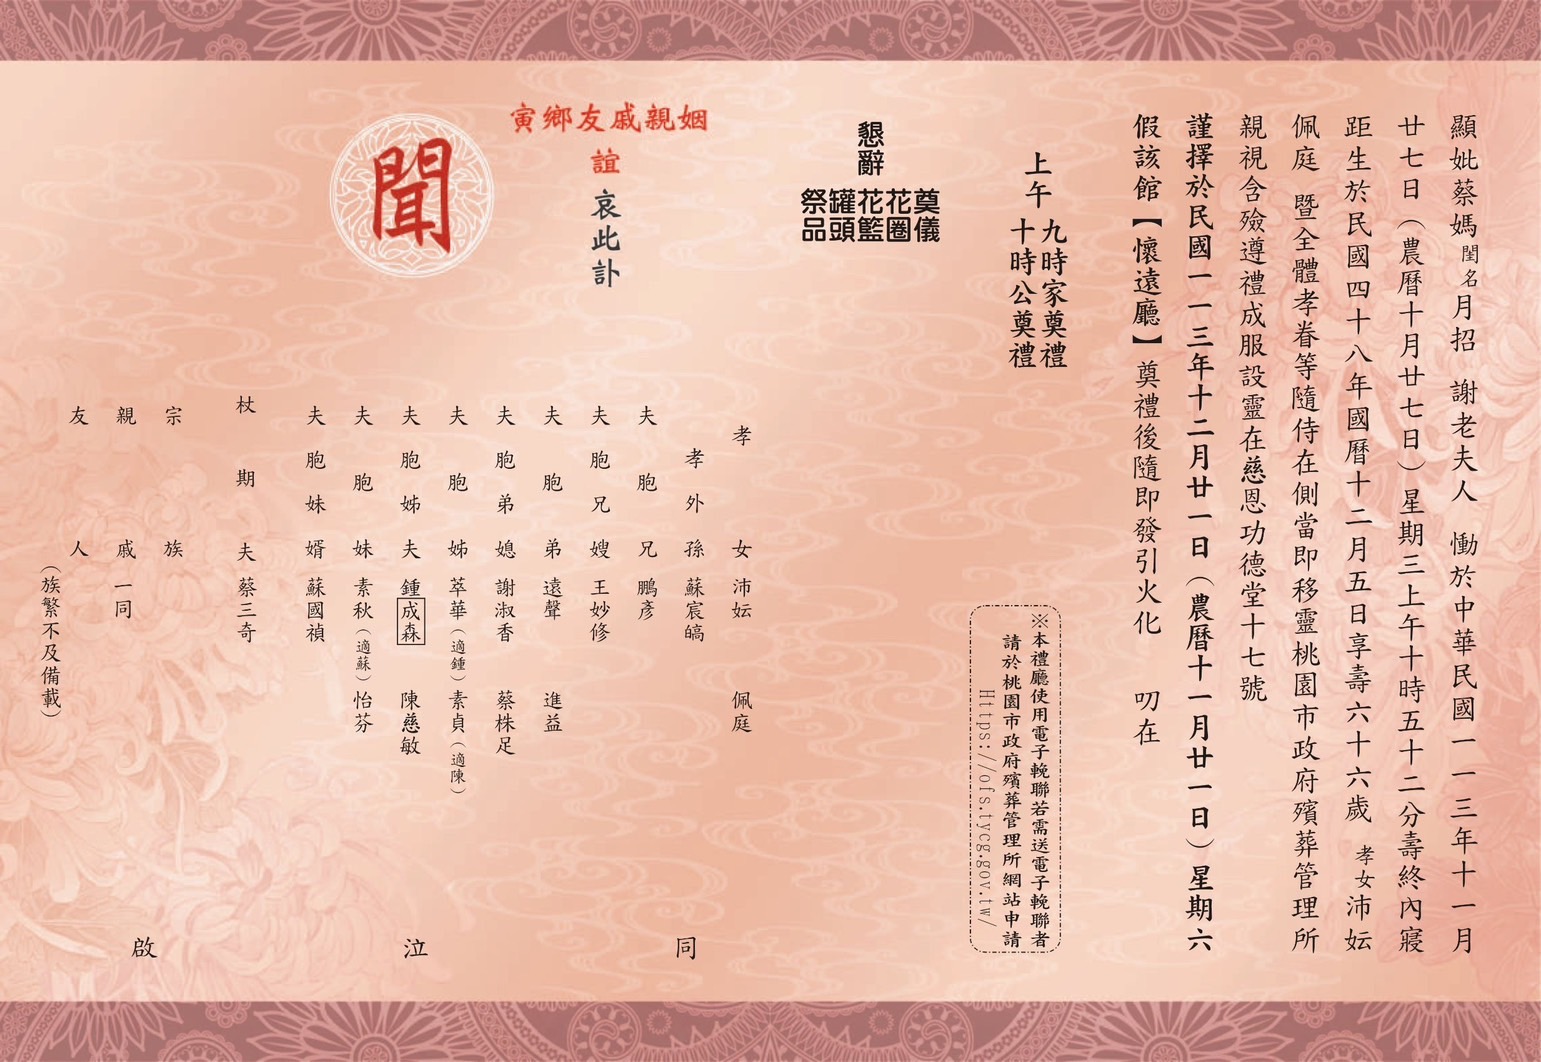 顯妣蔡媽閨名月招 謝老夫人 慟於中華民國一一三年十一月
廿七日（農曆十月廿七日）星期三上午十時五十二分壽終內寢
距生於民國四十八年國曆十二月五日享壽六十六歲 孝女沛妘
佩庭 暨全體孝眷等隨侍在側當即移靈桃園市政府殯葬管理所
親視含殮遵禮成服設靈在慈恩功德堂十七號
謹擇於民國一一三年十二月廿一日（農曆十一月廿一日）星期六
假該館【懷遠廳】奠禮後隨即發引火化 叨在
上午
九時家奠禮
十時公奠禮
※本禮廳使用電子輓聯若需送電子輓聯者
請於桃園市政府殯葬管理所網站申請
Https://ofs.tycg.gov.tw/
懇辭
奠儀
花圈
花籃
罐頭
祭品
姻親戚友鄉寅
誼 哀此訃
聞
孝女 沛妘 佩庭
孝外孫 蘇宸皜
夫胞兄 鵬彥
夫胞兄嫂 王妙修
夫胞弟 遠聲 進益
夫胞弟媳 謝淑香 蔡株足
夫胞姊 萃華（適鍾）素貞（適陳）
夫胞姊夫 鍾成森 陳慈敏
夫胞妹 素秋（適蘇）怡芬
夫胞妹婿 蘇國禎
杖期夫 蔡三奇
宗族
親戚一同
友人
（族繁不及備載）
同泣啟